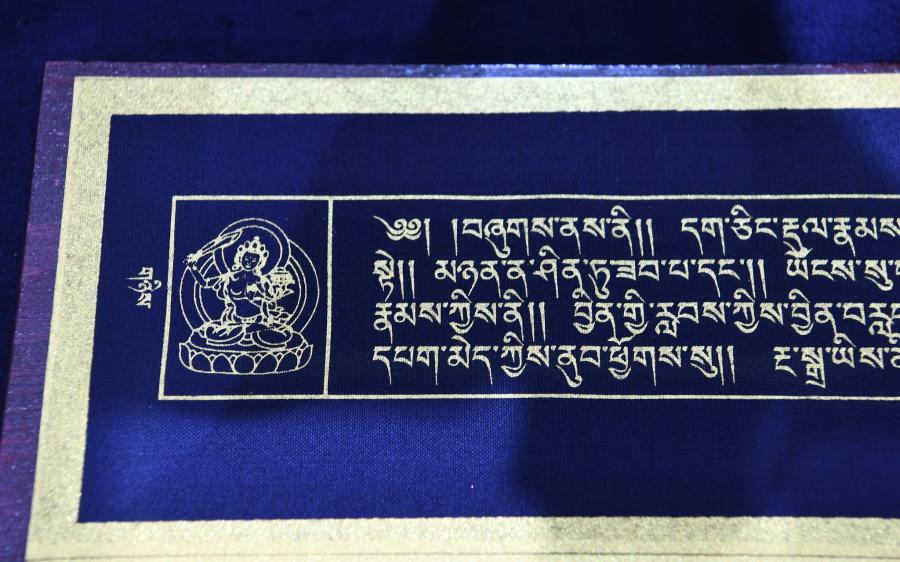 གཉིས
༄༅། །བཞུགས་ནས་ནི།། དག་ཅིང་རྡུལ་རྣམས
སྟེ།། མཉན་ན་ཤིན་ཏུ་ཟབ་པ་དང་།། ཡོངས་སུ
རྣམས་ཀྱིས་ནི།། བྱིན་གྱི་རླབས་ཀྱིས་བྱིན་བརླབ
དཔག་མེད་ཀྱིས་ནུབ་ཕྱོགས་སུ།། རྔ་སྒྲ་ཡིས་ནི